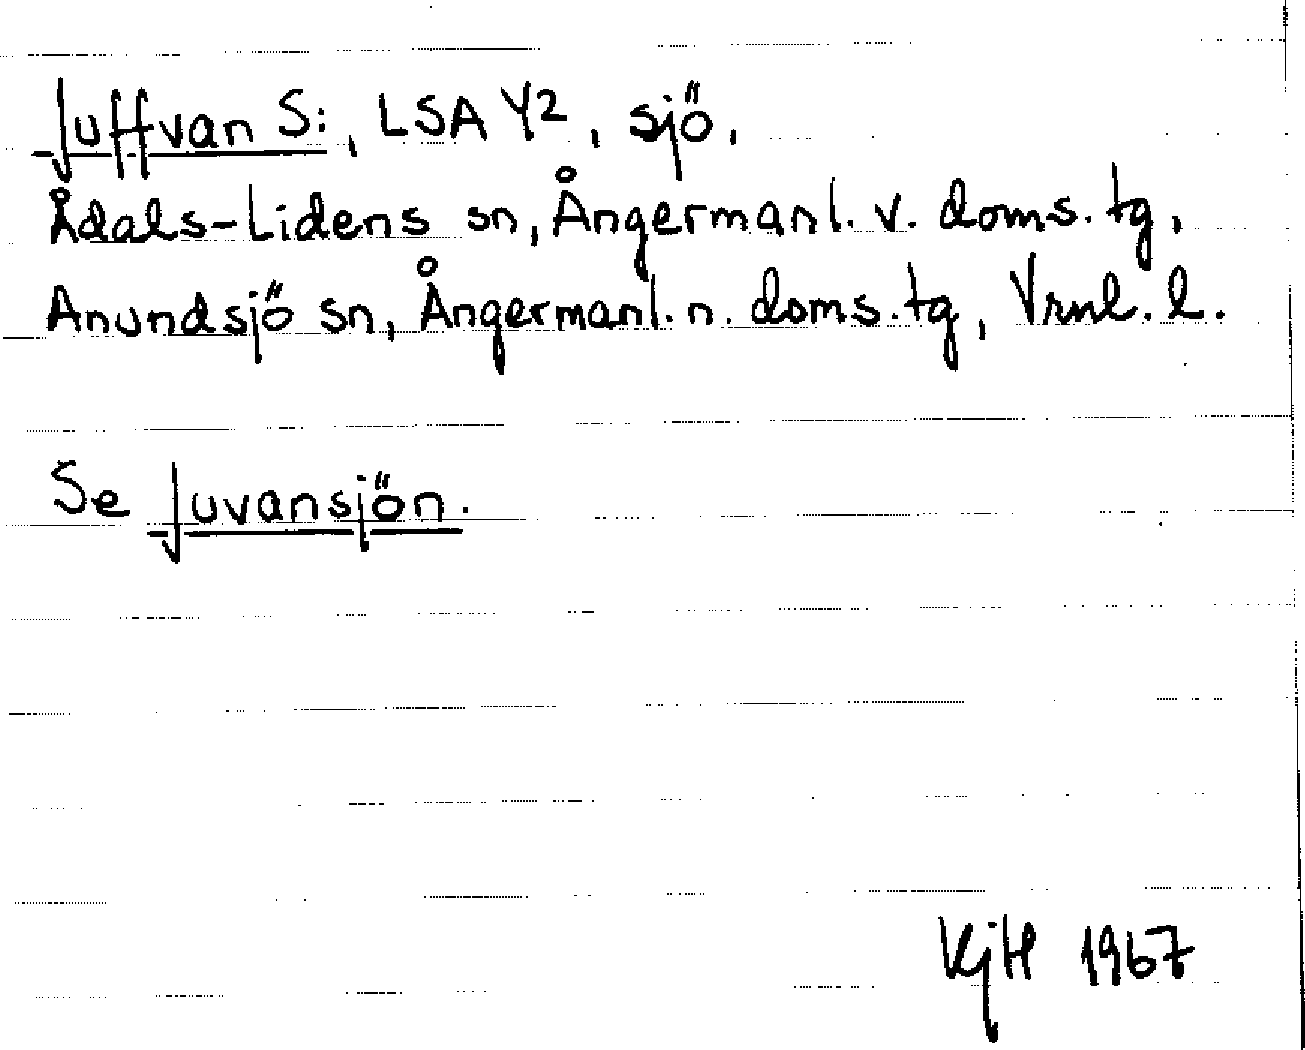 Juffvan S:, LSA Y2, sjö,
Ådals-Lidens sn, Ångermanl. v. doms. tg,
Anundsjö sn, Ångermanl. n. doms. tg, Vrnl. l.
Se Juvansjön.
KjH 1967